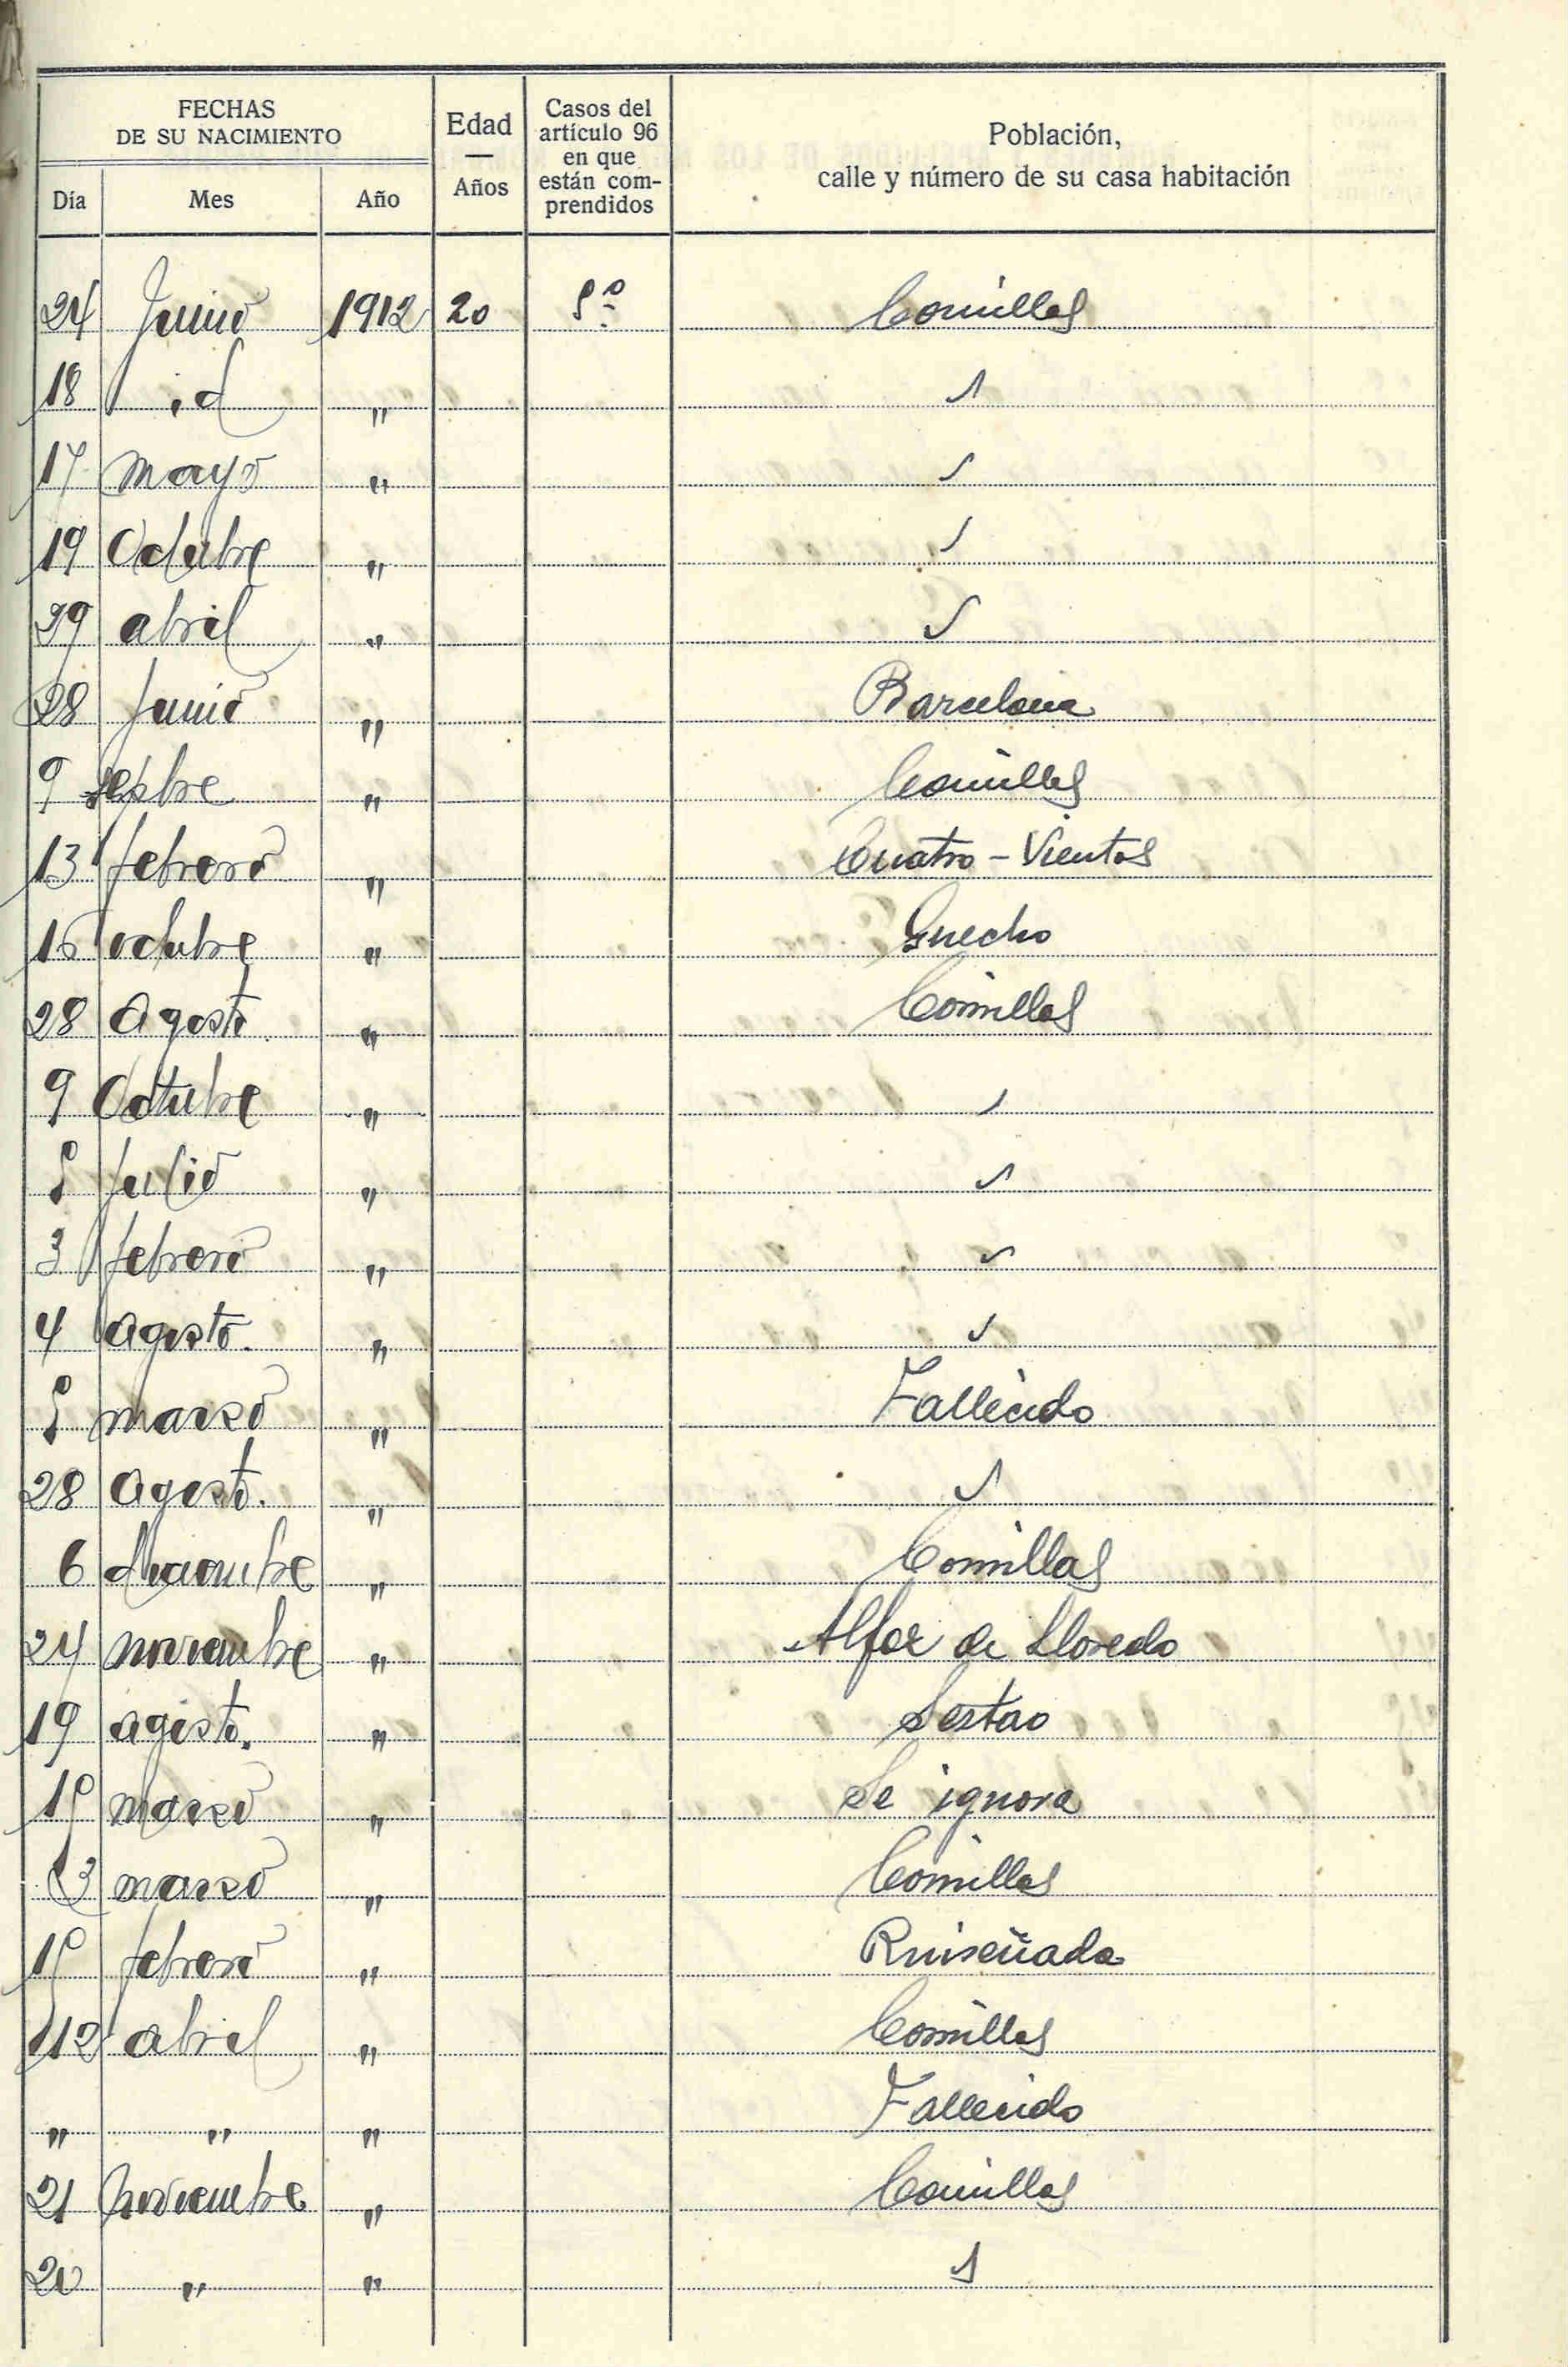 FECHAS
DE SU NACIMIENTO
Día Mes Año
Edad
—
Años
Casos del
artículo 96
en que
están com-
prendidos
Población,
calle y número de su casa habitación
24 Junio 1912 20 5º Comillas
18 id " "
17 mayo " "
19 Octubre " "
29 abril " "
28 Junio " Barcelona
9 Sepbre " Comillas
13 febrero " Cuatro-Vientos
15 octubre " Guecho
28 Agosto " Comillas
9 Octubre " "
5 Julio " "
3 febrero " "
4 agosto. " "
5 marzo " Fallecido
28 Agosto. " "
6 diciembre " Comillas
24 noviembre " Alfoz de Lloredo
19 agosto. " Sestao
15 marzo " Se ignora
13 marzo " Comillas
15 febrero " Ruiseñada
12 abril " Comillas
" " " Fallecido
21 Noviembre " Comillas
20 " " "